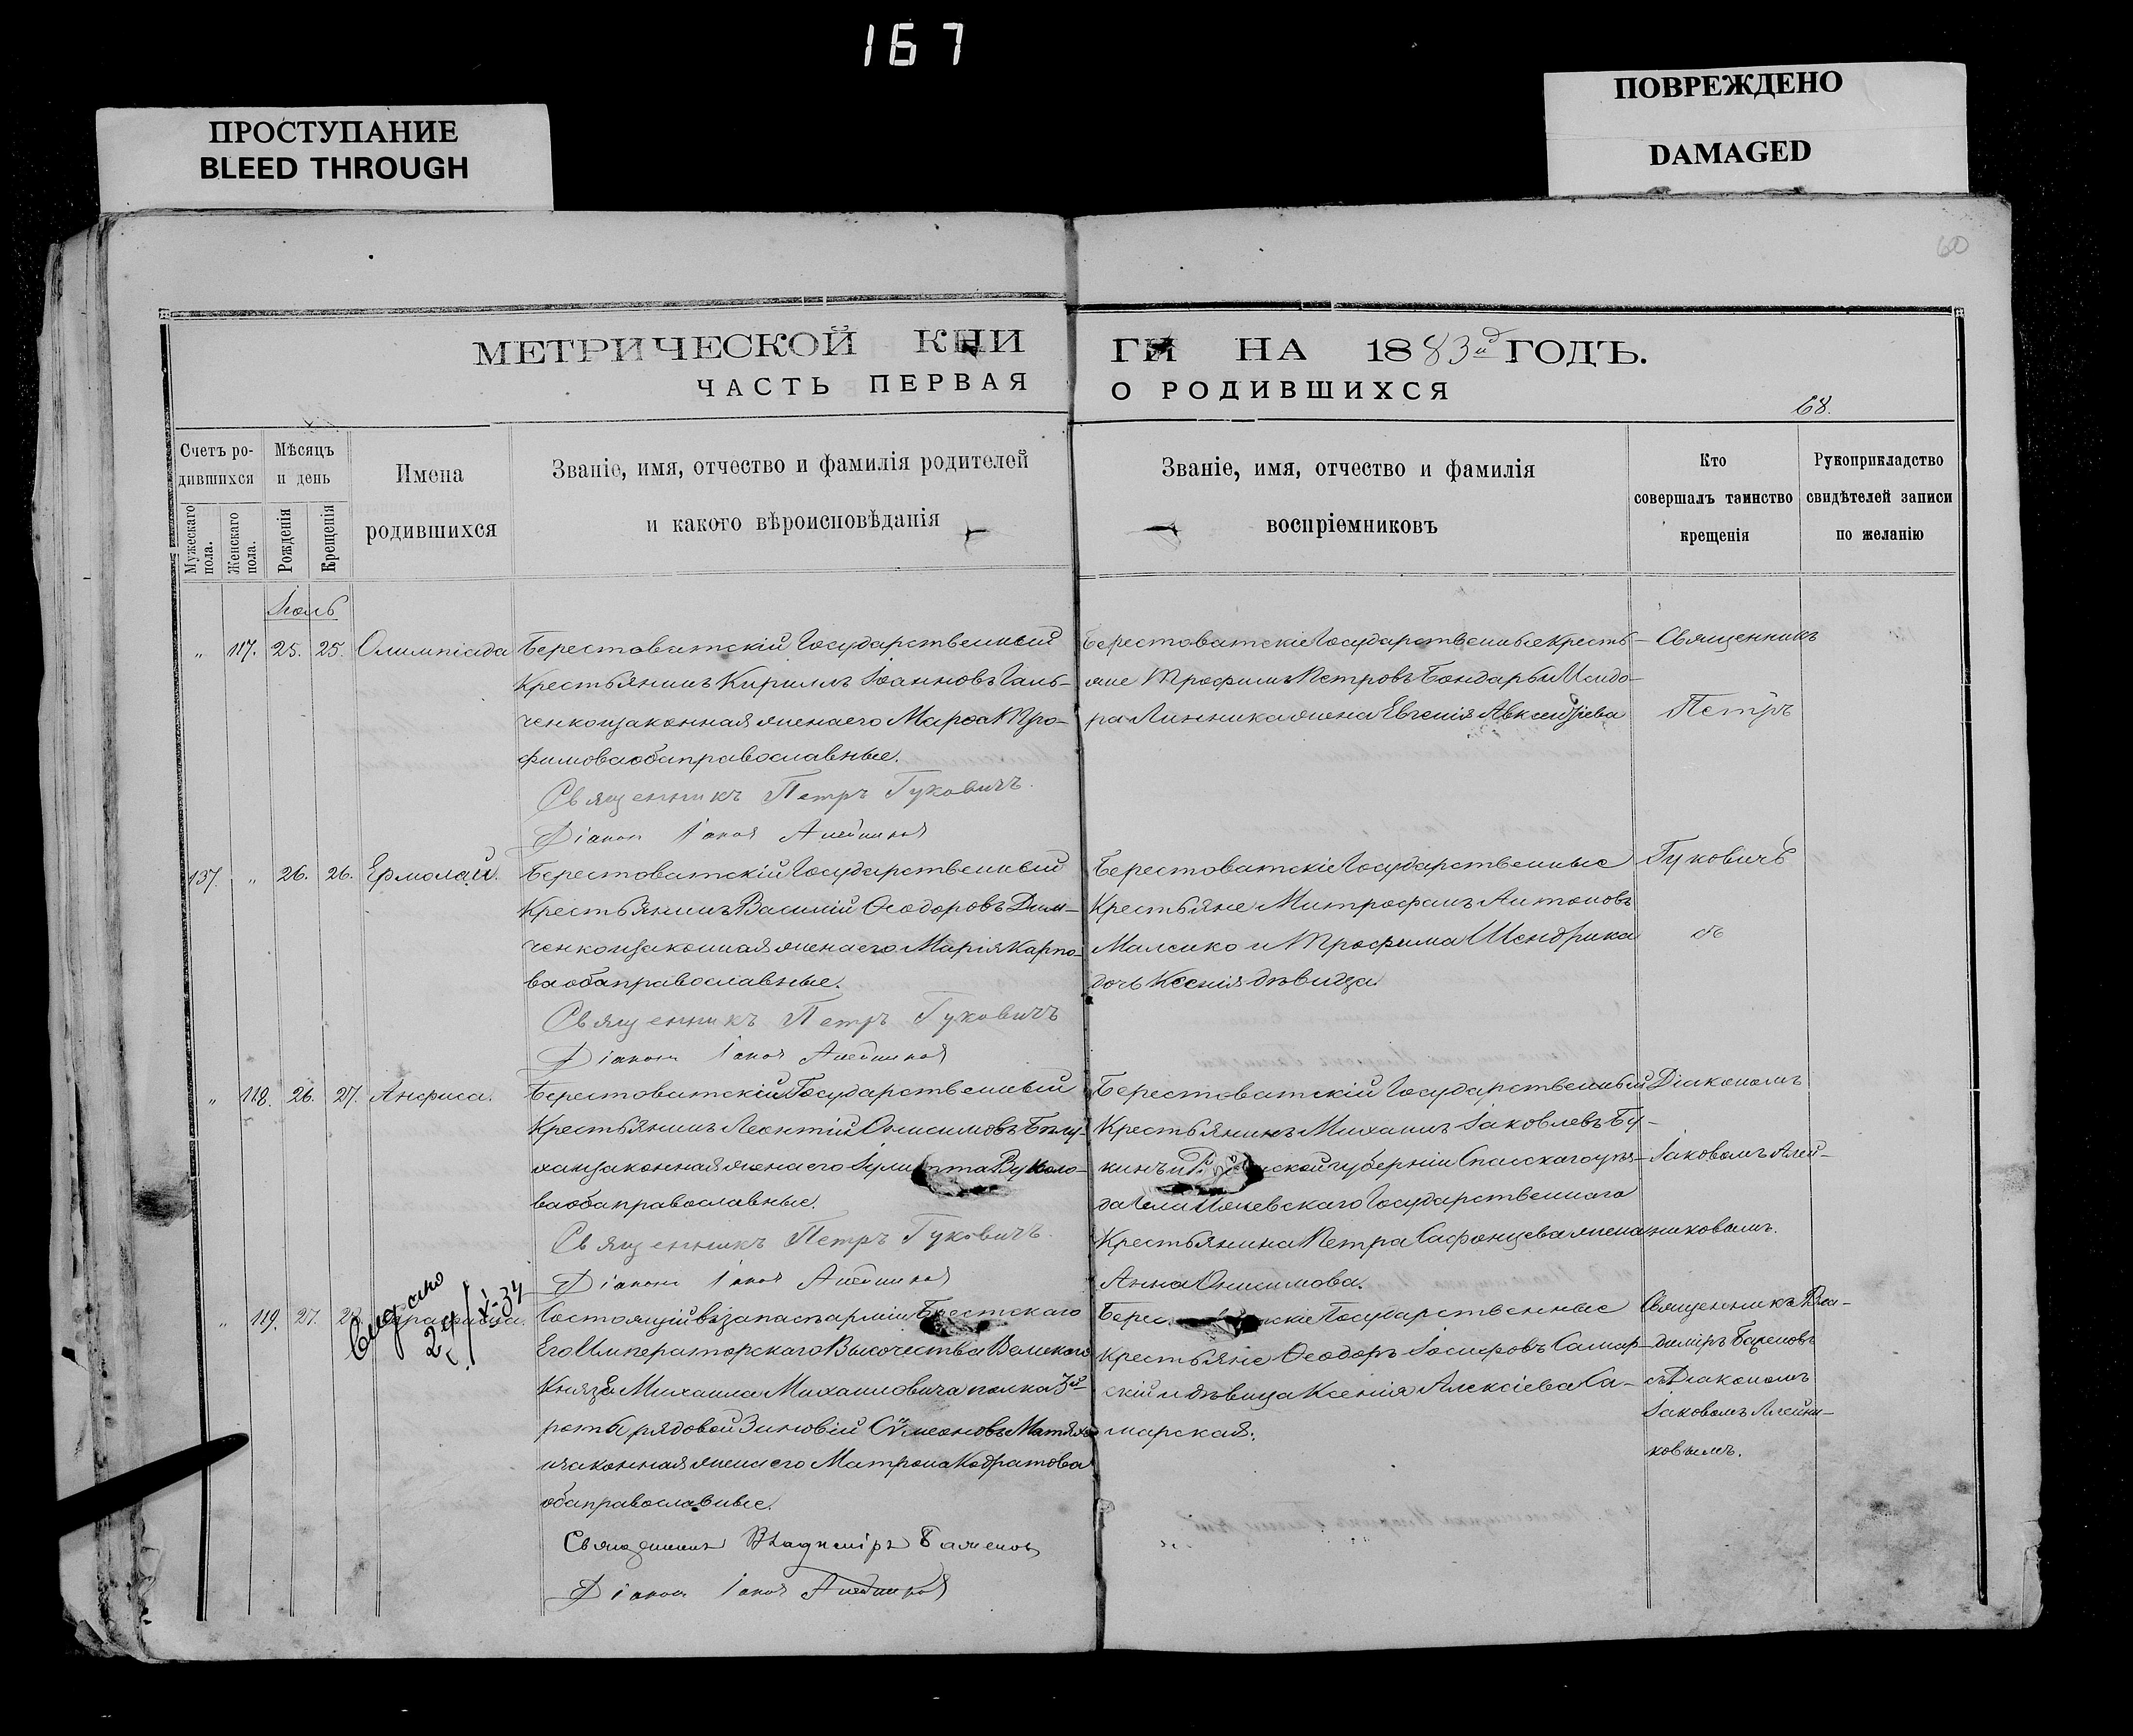 167
ПРОСТУПАНИЕ
BLEED THROUGH
ПОВРЕЖДЕНО
DAMAGED
60
МЕТРИЧЕСКОЙ КНИ
ГИ НА 1883й ГОДЪ.
ЧАСТЬ ПЕРВАЯ
О РОДИВШИХСЯ
68.
Счетъ ро-
дившихся
Мужескаго пола.
Женскаго пола.
Мѣсяцъ
и день
Рожденія
Крещенія
Имена
родившихся
Званіе, имя, отчество и фамилія родителей
и какого вѣроисповѣданія
Званіе, имя, отчество и фамилія
воспріемниковъ
Кто
совершалъ таинство
крещенія
Рукоприкладство
свидѣтелей записи
по желанію
Іюль
„ 117. 25. 25. Олимпіада
Берестоватскій Государственный
Крестьянинъ Кириллъ Іоанновъ Галь-
ченко и законная жена его Марѳа Тро-
фимова оба православные.
Священникъ Петръ Гуковичъ.
Діаконъ Іаковъ Алейников
Берестоватскіе Государственные Кресть-
яне Трофимъ Петровъ Бондарь и Исидо-
ра Линника жена Евгенія Авксентіева
Священникъ
Петръ
137. „ 26. 26. Ермолай.
Берестоватскій Государственный
Крестьянинъ Василій Ѳеодоровъ Дим-
ченко и законная жена его Марія Карпо-
ва оба православные.
Священникъ Петръ Гуковичъ
Діаконъ Іаковъ Алейников
Берестоватскіе Государственные
Крестьяне Митрофанъ Антоновъ
Малсико и Трофима Шендрика
дочь Ксенія дѣвица.
Гуковичъ
съ
„ 118. 26. 27. Анфиса.
Берестоватскій Государственный
Крестьянинъ Леонтій Онисимовъ
и законная жена его Вуколо-
ва оба православные.
Священникъ Петръ Гуковичъ.
Діаконъ Іаковъ Алейников
Берестоватскій Государственный
Крестьянинъ Михаилъ Іаковлевъ Бу-
кинъ и ской губерніи Спасскаго уѣз-
да Государственнаго
Крестьянина Петра Сафонцева жена
Анна Онисимова.
Діакономъ
Іаковомъ Алей-
никовымъ.
„ 119. 27.
24/X-34
Состоящій въ запасѣ арміи Брестскаго
Его Императорскаго Высочества Великаго
Князя Михаила Михаиловича полка 3й
роты рядовой Зиновій Сѵмеоновъ
и законная жена его Матрона Кодратова
оба православные.
Священникъ Владиміръ Баженовъ
Діаконъ Іаковъ Алейников
Государственные
Крестьяне Ѳеодоръ Іосифовъ Самар-
скій и дѣвица Ксенія Алексіева Са-
марская.
Священникъ Вла-
диміръ Баженовъ
съ Діакономъ
Іаковомъ Алейни-
ковымъ.